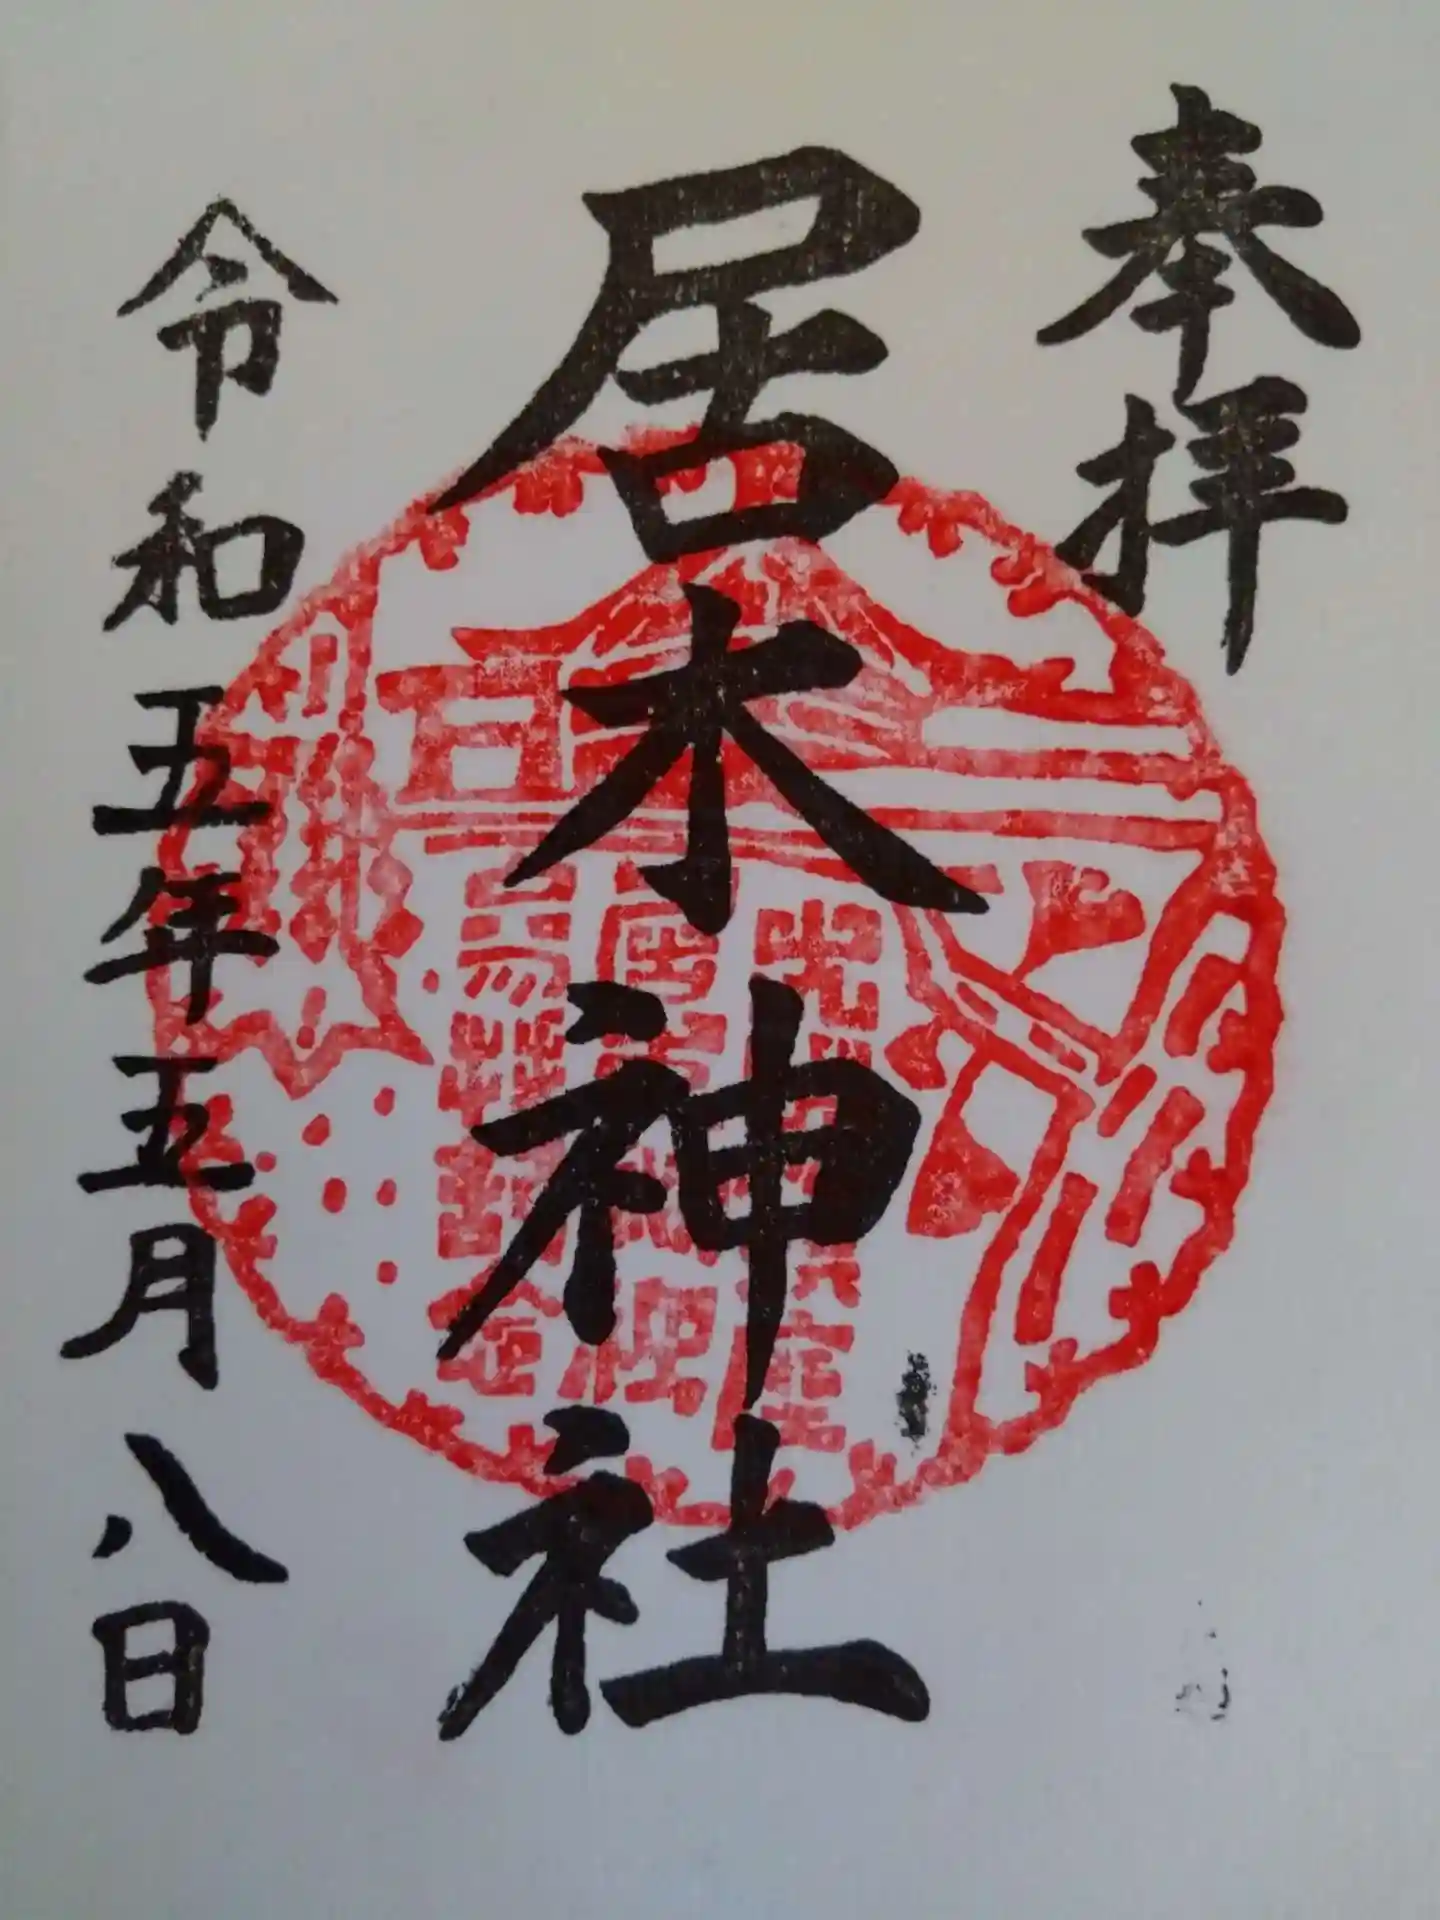 奉拝
居木神社
令和五年五月八日